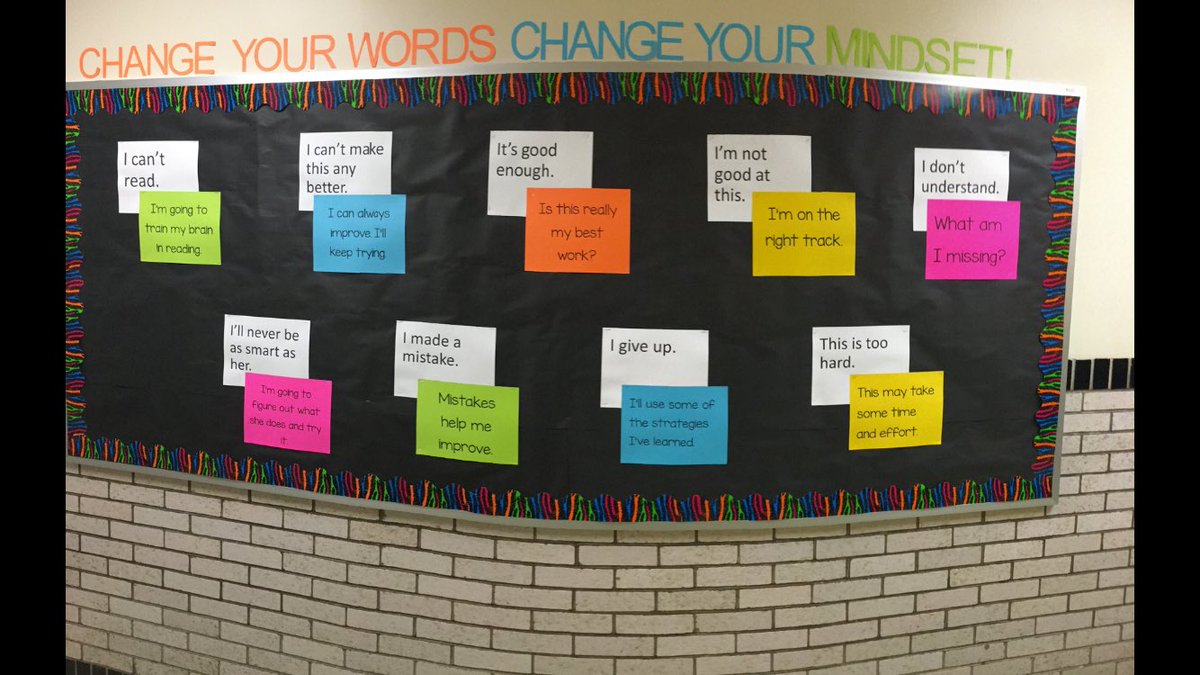 CHANGE YOUR WORDS CHANGE YOUR MINDSET!
I can't
read.
I'm going to
train my brain
in reading.
I can't make
this any
better.
I can always
improve. I'll
keep trying.
It's good
enough.
Is this really
my best
work?
I'm not
good at
this.
I'm on the
right track.
I don't
understand.
What am
I missing?
I'll never be
as smart as
her.
I'm going to
figure out what
she does and try
it.
I made a
mistake.
Mistakes
help me
improve.
I give up.
I'll use some of
the strategies
I've learned.
This is too
hard.
This may take
some time
and effort.